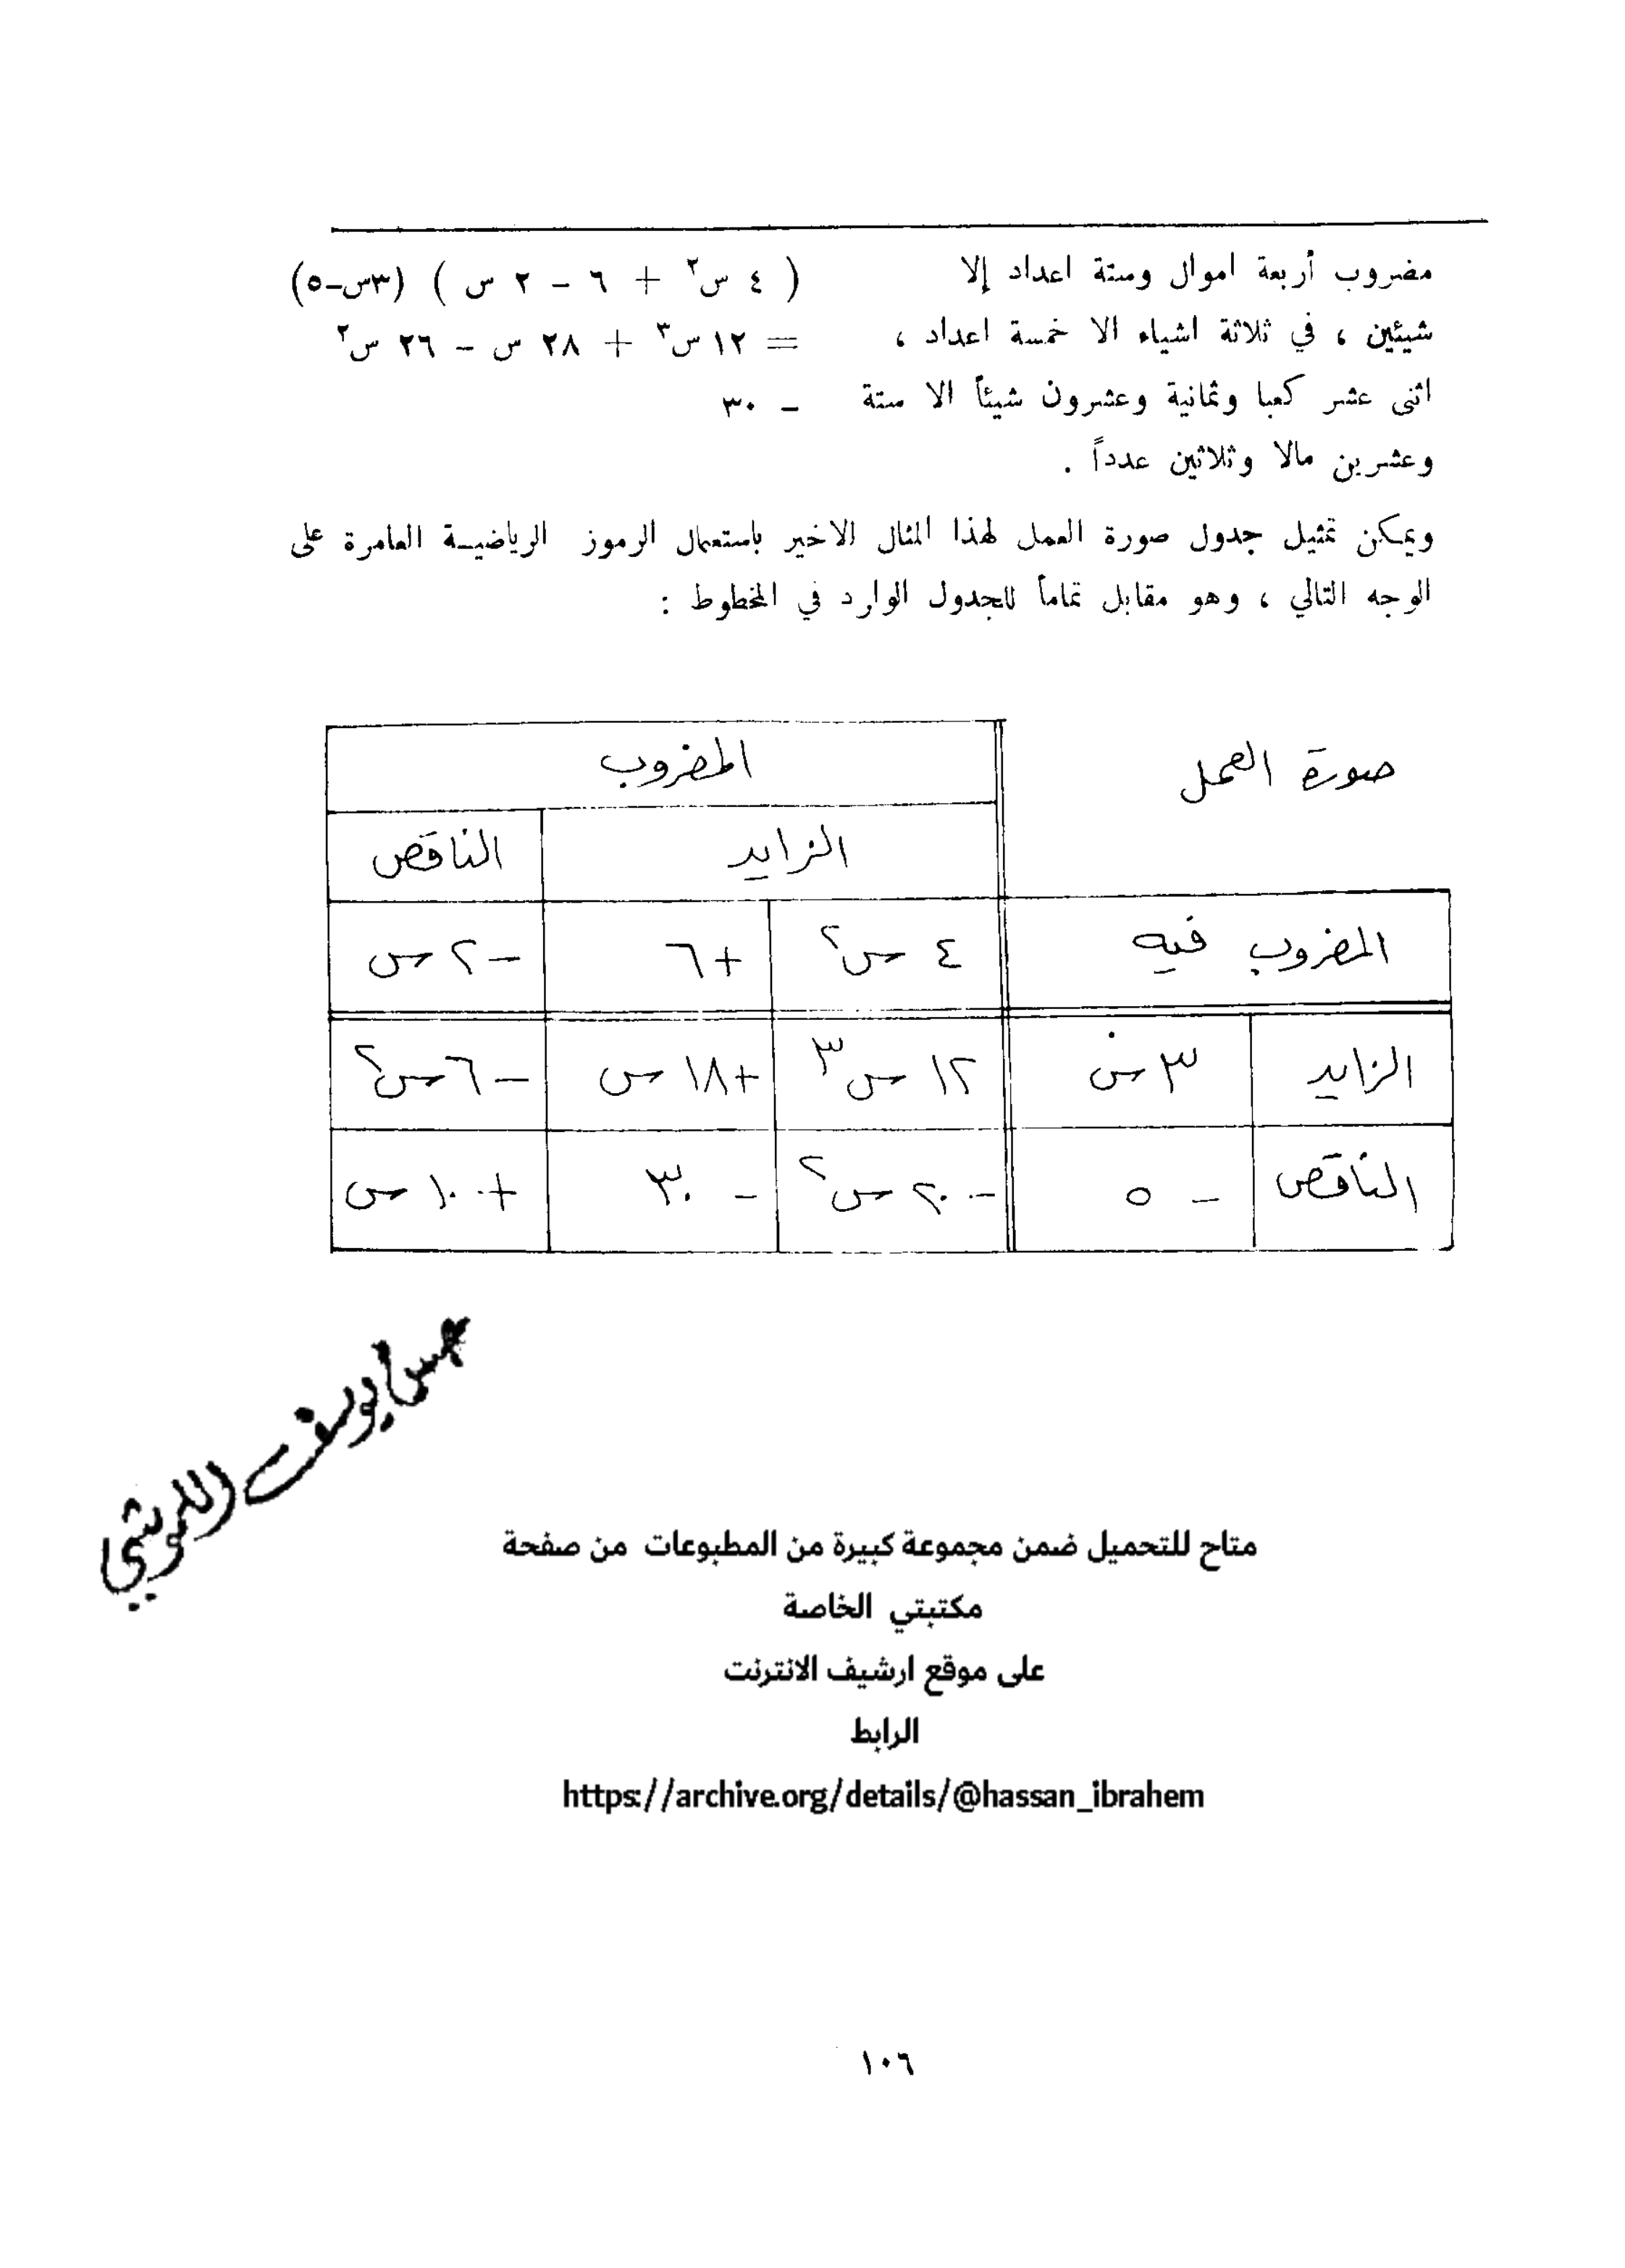 مضروب أربعة اموال وستة اعداد إلا ( ٤ س٢ + ٦ - ٢ س ) (٣س-٥)
شيئين ، في ثلاثة اشياء الا خمسة اعداد ، = ١٢ س٣ + ٢٨ س - ٢٦ س٢
اثنى عشر كعبا وثمانية وعشرون شيئاً الا ستة - ٣٠
وعشرين مالا وثلاثين عدداً .
ويمكن تمثيل جدول صورة العمل لهذا المثال الاخير باستعمال الرموز الرياضية العامرة على
الوجه التالي ، وهو مقابل تماماً للجدول الوارد في المخطوط :
صورة العمل المضروب
الزايد الناقص
المضروب فيه ٤ س٢ +٦ -٢ س
الزايد ٣ س ١٢ س٣ +١٨ س -٦ س٢
الناقص - ٥ -٢٠ س٢ - ٣٠ +١٠ س
متاح للتحميل ضمن مجموعة كبيرة من المطبوعات من صفحة
مكتبتي الخاصة
على موقع ارشيف الانترنت
الرابط
https://archive.org/details/@hassan_ibrahem
١٠٦